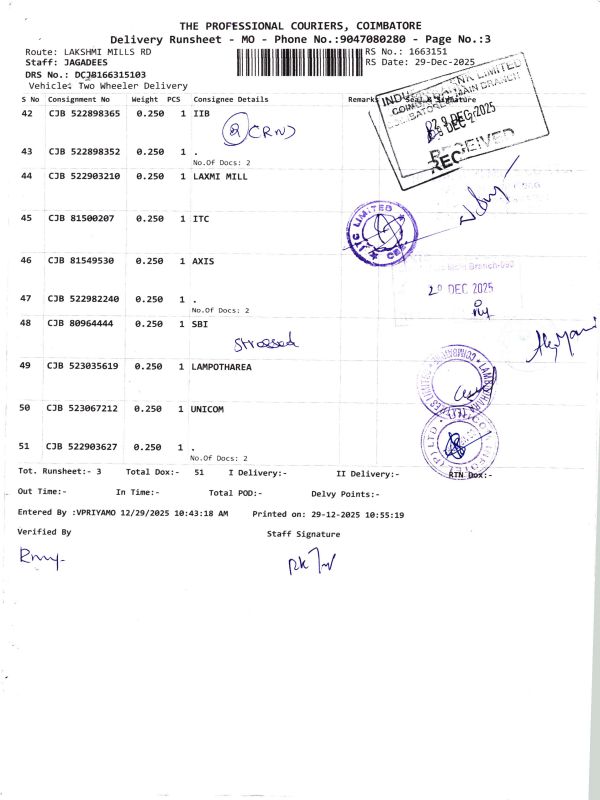 THE PROFESSIONAL COURIERS, COIMBATORE
Delivery Runsheet - MO - Phone No.:9047080280 - Page No.:3
Route: LAKSHMI MILLS RD RS No.: 1663151
Staff: JAGADEES RS Date: 29-Dec-2025
DRS No.: DCJB166315103
Vehicle: Two Wheeler Delivery
S No Consignment No Weight PCS Consignee Details Remarks Seal & Signature
INDUSIND BANK LIMITED
COIMBATORE MAIN BRANCH
29 DEC 2025
RECEIVED
42 CJB 522898365 0.250 1 IIB
2 (CRN)
43 CJB 522898352 0.250 1 .
No.Of Docs: 2
44 CJB 522903210 0.250 1 LAXMI MILL
45 CJB 81500207 0.250 1 ITC
ITC LIMITED
CBE
46 CJB 81549530 0.250 1 AXIS
29 DEC 2025
47 CJB 522982240 0.250 1 .
No.Of Docs: 2
48 CJB 80964444 0.250 1 SBI
Stressed
49 CJB 523035619 0.250 1 LAMPOTHAREA
50 CJB 523067212 0.250 1 UNICOM
51 CJB 522903627 0.250 1 .
No.Of Docs: 2
Tot. Runsheet:- 3 Total Dox:- 51 I Delivery:- II Delivery:- RTN Dox:-
Out Time:- In Time:- Total POD:- Delvy Points:-
Entered By :VPRIYAMO 12/29/2025 10:43:18 AM Printed on: 29-12-2025 10:55:19
Verified By Staff Signature